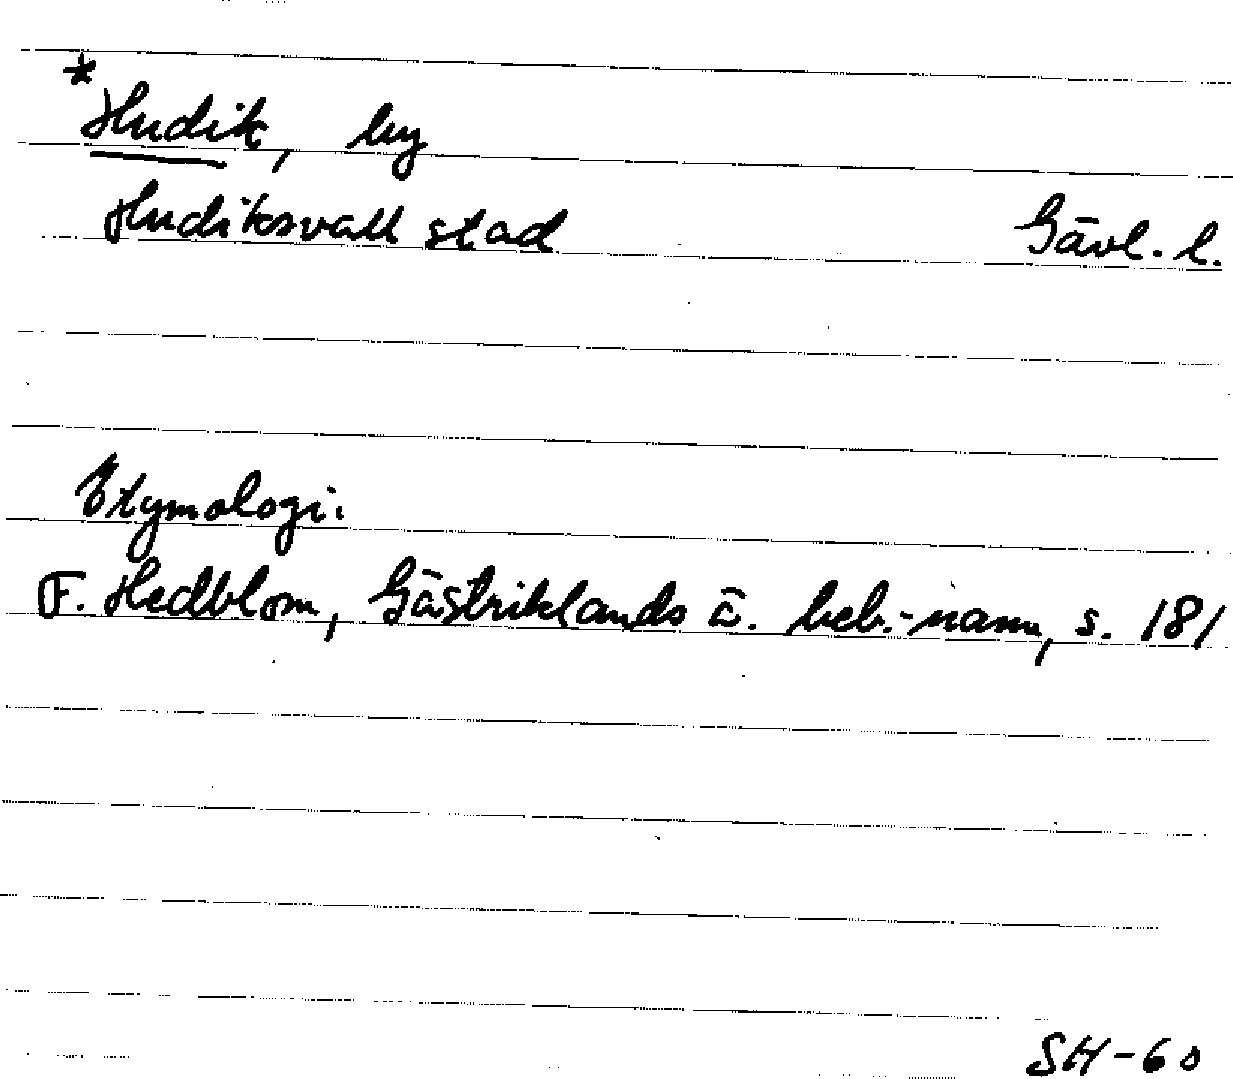 *Hudik, by
Hudiksvall stad Gävl. l.
Etymologi.
F. Hedblom, Gästriklands ä. beb.-namn, s. 181
SH-60